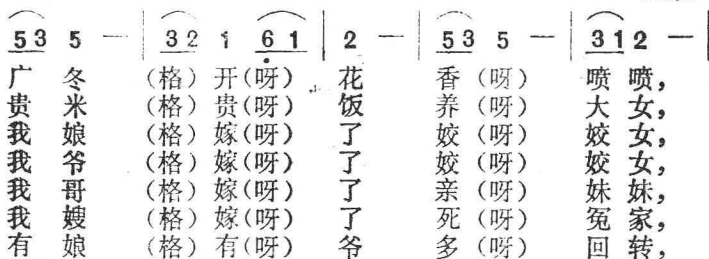 5 3 5 — | 3 2 1 6 1 | 2 — | 5 3 5 — | 3 1 2 — |
广 冬 （格）开（呀） 花 香（呀） 喷 喷，
贵 米 （格）贵（呀） 饭 养（呀） 大 女，
我 娘 （格）嫁（呀） 了 姣（呀） 姣 女，
我 爷 （格）嫁（呀） 了 姣（呀） 姣 女，
我 哥 （格）嫁（呀） 了 亲（呀） 妹 妹，
我 嫂 （格）嫁（呀） 了 死（呀） 冤 家，
有 娘 （格）有（呀） 爷 多（呀） 回 转，